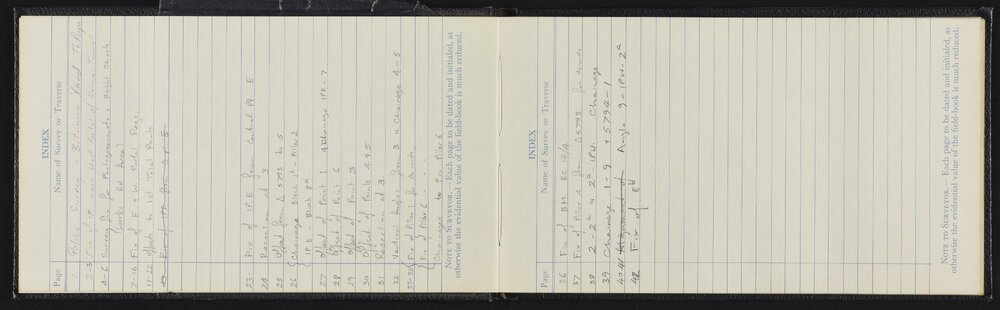 INDEX
Page Name of Survey or Traverse
1 Police Survey - Yard To Page
2-3 Fix of IP near West Portal of
4-6 Survey fix for Photogrammetric Height Check
(Works Rd Area)
7-16 Fix of E & W Portal Pegs
17-22 Offsets to 1st Trial Points
23 Fix of IPE from Control Pt E
24 Resection at 3
25 Offset from Δ 5793 to 5
26 Chainage Block 1A - Pillar 2
IP E - Block 8A
27 Offset of Point 1 & Chainage IPA - 7
28 Offset of Point 6
29 Offset of Point 3
30 Offset of Points 4 & 5
31 Resection at 3
32 Vertical Angles from 3 & Chainage 4-5
33-35 Fix of Pillar 1 for
Fix of Pillar 6 " " "
Chainages to Fix Pillar 6
NOTE TO SURVEYOR.—Each page to be dated and initialed, as
otherwise the evidential value of the field-book is much reduced.
INDEX
Page Name of Survey or Traverse
36 Fix of BM
37 Fix of Pillar A from Δ 5793 for
38 2-2A & 2A-IPW. Chainage
39 Chainage 1-9 & 5794-1
40 41 Alignment of Angle 9-IPW-2A
42 Fix of 8W
NOTE TO SURVEYOR.—Each page to be dated and initialed, as
otherwise the evidential value of the field-book is much reduced.